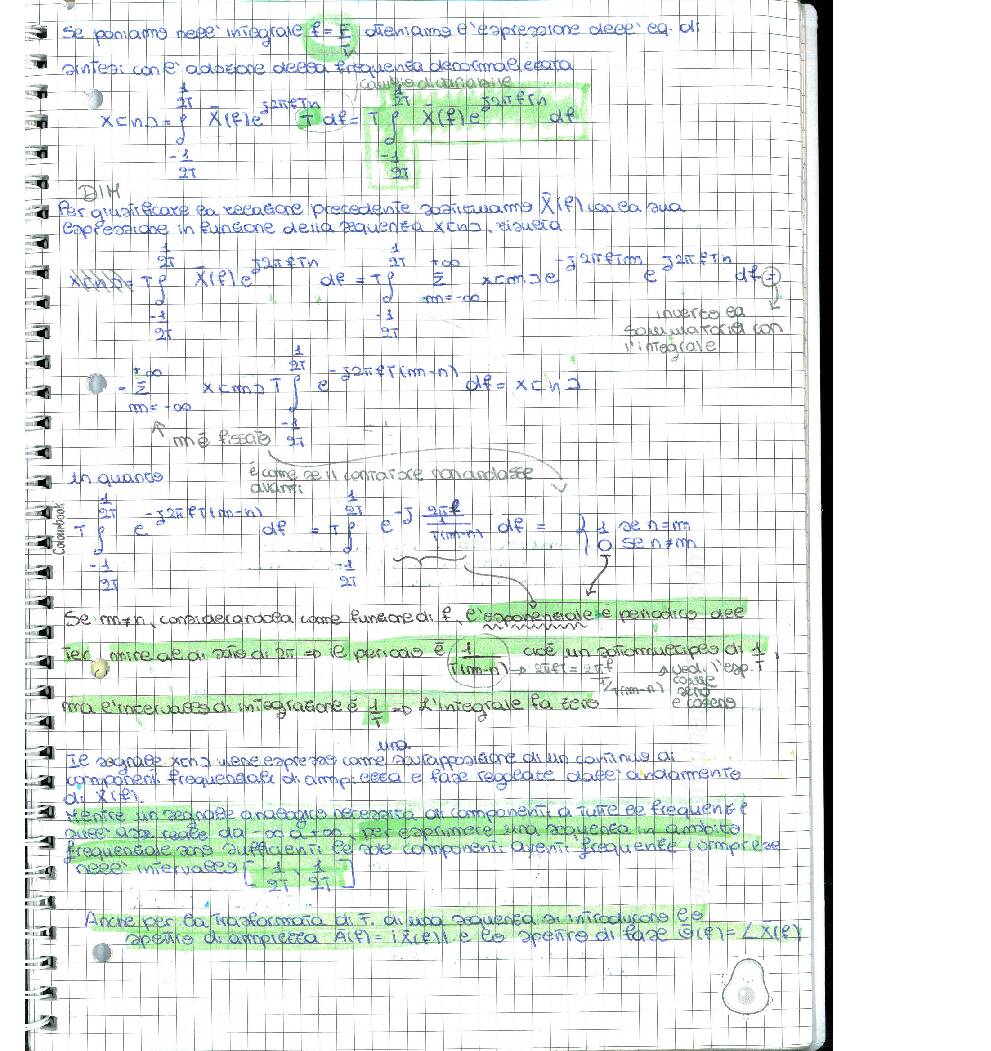 Se poniamo nell'integrale f = F/T otteniamo l'espressione dell'eq. di
sintesi con l'adozione della frequenza denormalizzata
cambio di variabile
x[n] = ∫_{-1/2T}^{1/2T} X̄(f) e^{j2πfTn} T df = T ∫_{-1/2T}^{1/2T} X̄(f) e^{j2πfTn} df
DIM
Per giustificare la relazione precedente sostituiamo X̄(f) con la sua
espressione in funzione della sequenza x[n], risulta
x[n] = T ∫_{-1/2T}^{1/2T} X̄(f) e^{j2πfTn} df = T ∫_{-1/2T}^{1/2T} Σ_{m=-∞}^{+∞} x[m] e^{-j2πfTm} e^{j2πfTn} df =
inverto la
sommatoria con
l'integrale
= Σ_{m=-∞}^{+∞} x[m] T ∫_{-1/2T}^{1/2T} e^{-j2πfT(m-n)} df = x[n]
m è fissato
è come se il contatore non andasse
avanti
in quanto
T ∫_{-1/2T}^{1/2T} e^{-j2πfT(m-n)} df = T ∫_{-1/2T}^{1/2T} e^{-j 2πf / (1/T(m-n))} df = { 1 se n=m
0 se n≠m
Colourbook
Se m≠n, considerandola come funzione di f, l'esponenziale è periodico del
ter mine di 2π => il periodo è 1/T(m-n) cioè un sottomultiplo di 1/T,
-> 2πft = 2πf / 1/T(m-n)
vedi l'esp.
come
seno
e coseno
ma l'intervallo di integrazione è 1/T => L'integrale fa zero
Il segnale x[n] viene espresso come una sovrapposizione di un continuo di
componenti frequenziali di ampiezza e fase regolate dall'andamento
di X̄(f).
Mentre un segnale analogico necessita di componenti a tutte le frequenze
sull'asse reale da -∞ a +∞, per esprimere una sequenza in ambito
frequenziale sono sufficienti le sole componenti aventi frequenze comprese
nell'intervallo [-1/2T, 1/2T]
Anche per la Trasformata di F. di una sequenza si introducono lo
spettro di ampiezza A(f) = |X̄(f)| e lo spettro di fase Θ(f) = ∠X̄(f)